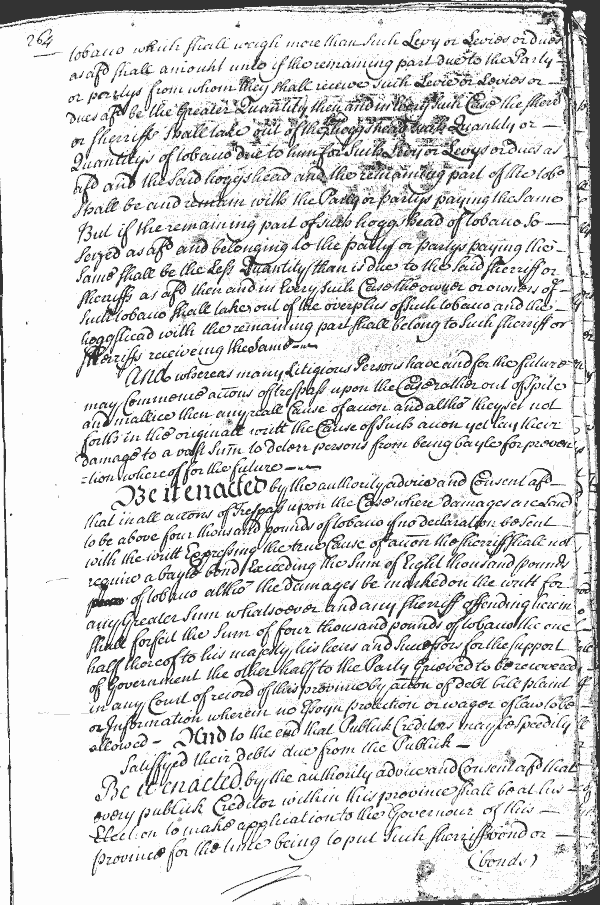 264
tobacco which shall weigh more than such Levy or Levies or dues
as afd shall amount unto if the remaining part due to the Party
or partys from whom they shall receive such Levie or Levies or
dues afd be the Greater Quantity then and in every such Case the sherif
or sherriffs shall take out of the hoggshead such Quantity or
Quantitys of tobacco due to him for such Levy or Levys or dues as
afd and the said hoggshead and the remaining part of the tobo
shall be and remain with the Party or partys paying the same
But if the remaining part of such hoggshead of tobacco so
seized as afd and belonging to the party or partys paying the
same shall be the less Quantity than is due to the said sherriff or
sherriffs as afd then and in Every such Case the owner or owners of
such tobacco shall take out of the overplus of such tobacco and the
hoggshead with the remaining part shall belong to such sherriff or
sherriffs receiveing the same
And whereas many Litigious Persons have and for the future
may Commence accons of trespass upon the Case rather out of spite
and mallice then any reall Cause of accon and altho they set not
forth in the originall writt the Cause of such accon yet lay their
damage to a vast sum to deterr persons from being bayle for preven
=tion whereof for the future
Be it enacted by the authority advice and Consent afd
that in all accons of trespass upon the Case where damages are laid
to be above four thousand pounds of tobacco if no declaration be sent
with the writt Expressing the true Cause of accon the sherriff shall not
require a bayle bond Exceeding the sum of Eight thousand pounds
of tobacco altho the damages be marked on the writt for
any Greater sum whatsoever and any sherriff offending herein
shall forfeit the sum of four thousand pounds of tobacco the one
half thereof to his majesty his heirs and successors for the support
of Government the other half to the Party Grieved to be recovered
in any Court of record of this province by accon of debt bill plaint
or Information wherein no Essoyn protection or wager of law to be
allowed And to the end that Publick Creditors may be speedily
satisfyed their debts due from the Publick
Be it enacted by the authority advice and Consent afd that
every publick Creditor within this province shall be at his
Election to make application to the Governour of this
province for the time being to put such sherriffs bond or
(bonds)